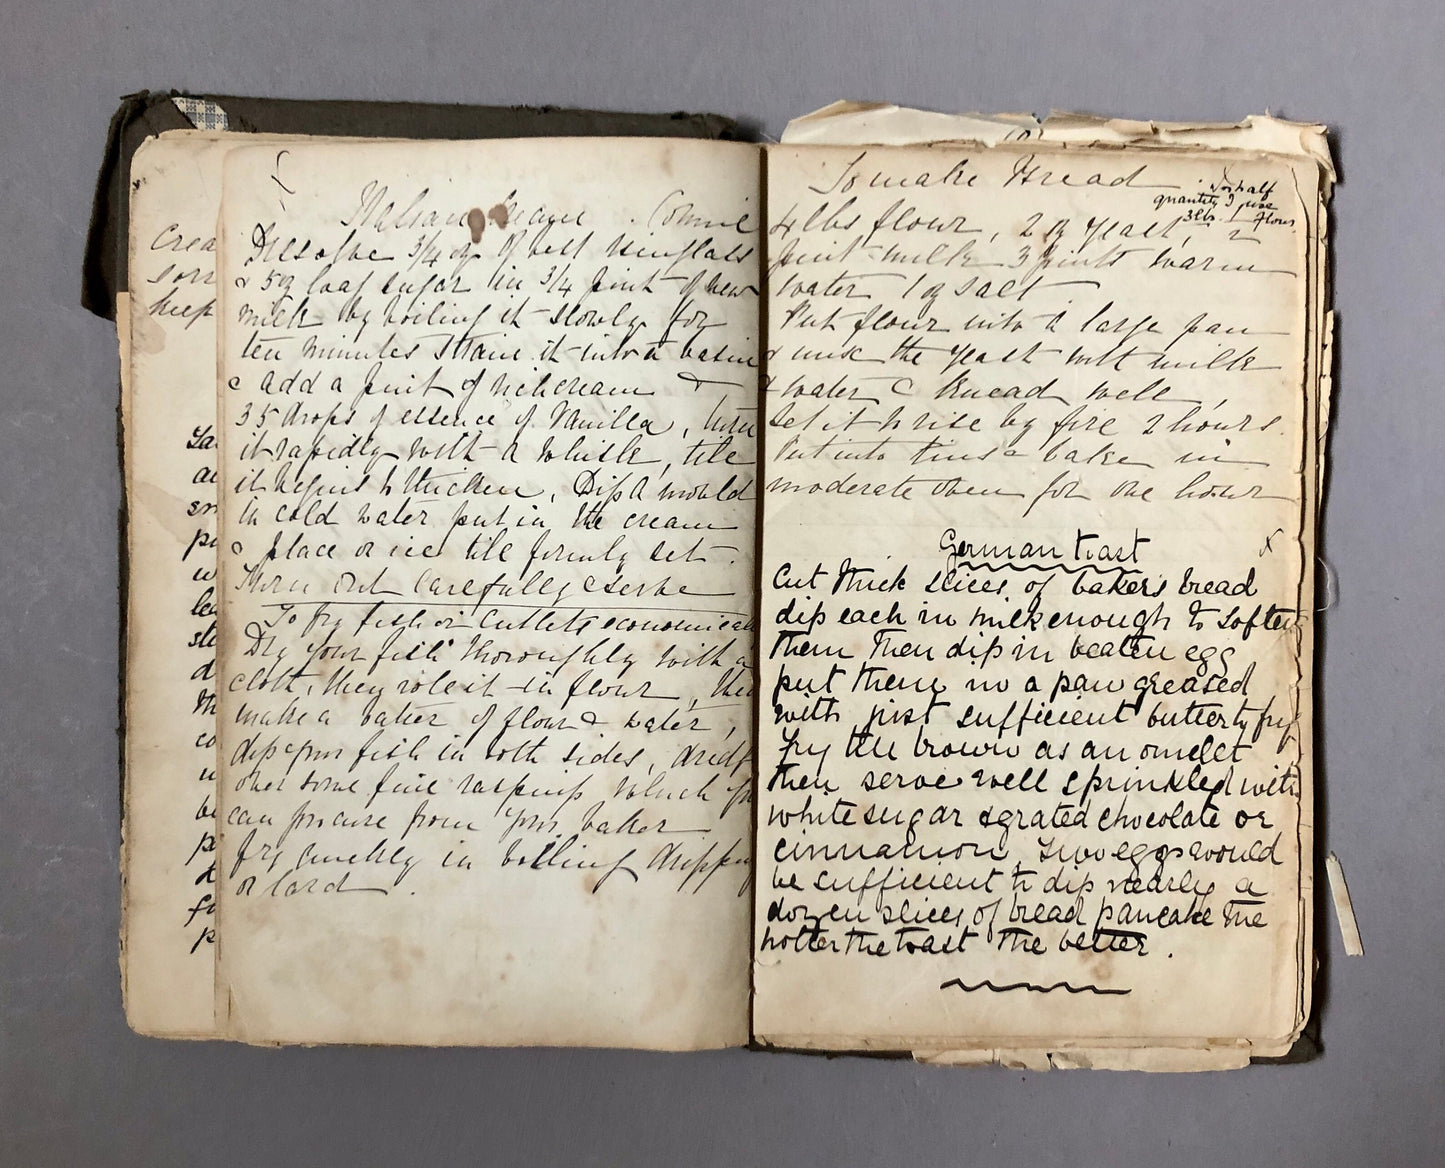 Crea
sorr
keep
Italian Cream . Connie
Dissolve 3/4 oz of best isinglass
& 5 oz loaf sugar in 3/4 pint of new
milk by boiling it slowly for
ten minutes strain it into a basin
& add a pint of rich cream &
35 drops of essence of Vanilla,
it rapidly with a whisk, till
it begins to thicken, Dip a mould
in cold water put in the cream
& place on ice till firmly set.
Turn out carefully & serve
To fry fish or Cutlets economical
Dry your fish thoroughly with a
cloth, then role it in flour, then
make a batter of flour & water,
dip your fish in both sides,
over some fine raspings which you
can procure from your baker
fry quickly in boiling dripping
or lard.
To make Bread
For half
quantity I use
3lbs. flour
4 lbs flour, 2 oz yeast, 1/2
pint milk 3 pints warm
water 1 oz salt.
Put flour into a large pan
& mix the yeast with milk
& water & knead well,
Set it to rise by fire 2 hours.
Put into tins & bake in
moderate oven for one hour
German toast x
Cut thick slices of baker's bread
dip each in milk enough to soften
them then dip in beaten egg
put them in a pan greased
with just sufficient butter to fry
fry till brown as an omelet
then serve well sprinkled with
white sugar & grated chocolate or
cinnamon, two eggs would
be sufficient to dip nearly a
dozen slices of bread pancake the
hotter the toast the better.